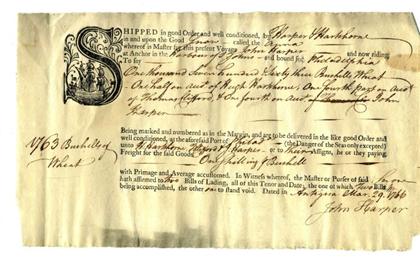 SHIPPED in good Order and well conditioned, by Harper & Hartshorne
in and upon the Good Snow called the Anna
whereof is Master for this present Voyage John Harper and now riding
at Anchor in the Harbour of St Johns and bound for Philadelphia
To say
One thousand Seven hundred Sixty three Bushells Wheat
One half on acct of Hugh Hartshorne, One fourth part on acct
of Thomas Clifford & One fourth on acct of John
Harper
Being marked and numbered as in the Margin, and are to be delivered in the like good Order and
well conditioned, at the aforesaid Port of (the Danger of the Seas only excepted)
unto Hartshorne & J Harper or to their Assigns, he or they paying
Freight for the said Goods One Shilling Bushell
1763 Bushells of
Wheat
with Primage and Average accustomed. In Witness whereof, the Master or Purser of said Snow
hath affirmed to two Bills of Lading, all of this Tenor and Date; the one of which two Bills
being accomplished, the other one to stand void. Dated in Antigua Mar. 29. 1766
John Harper